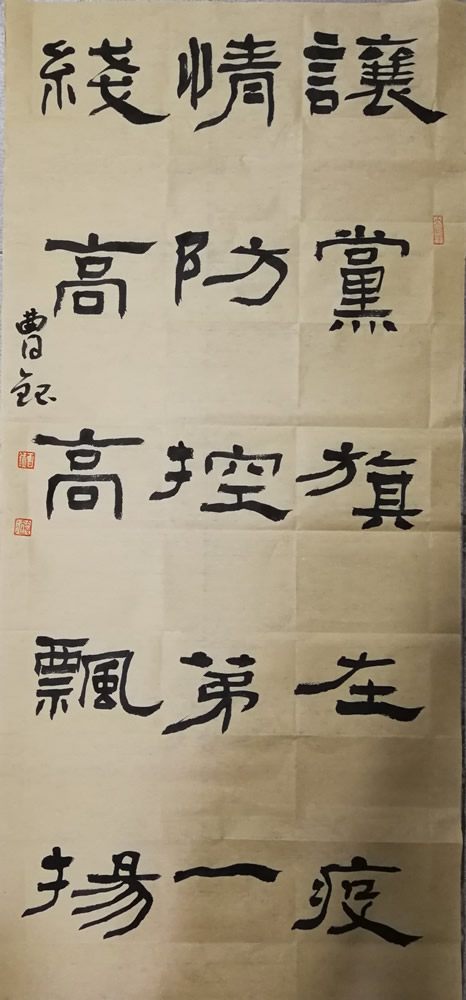 讓黨旗在疫
情防控第一
綫高高飄揚
曹鈺